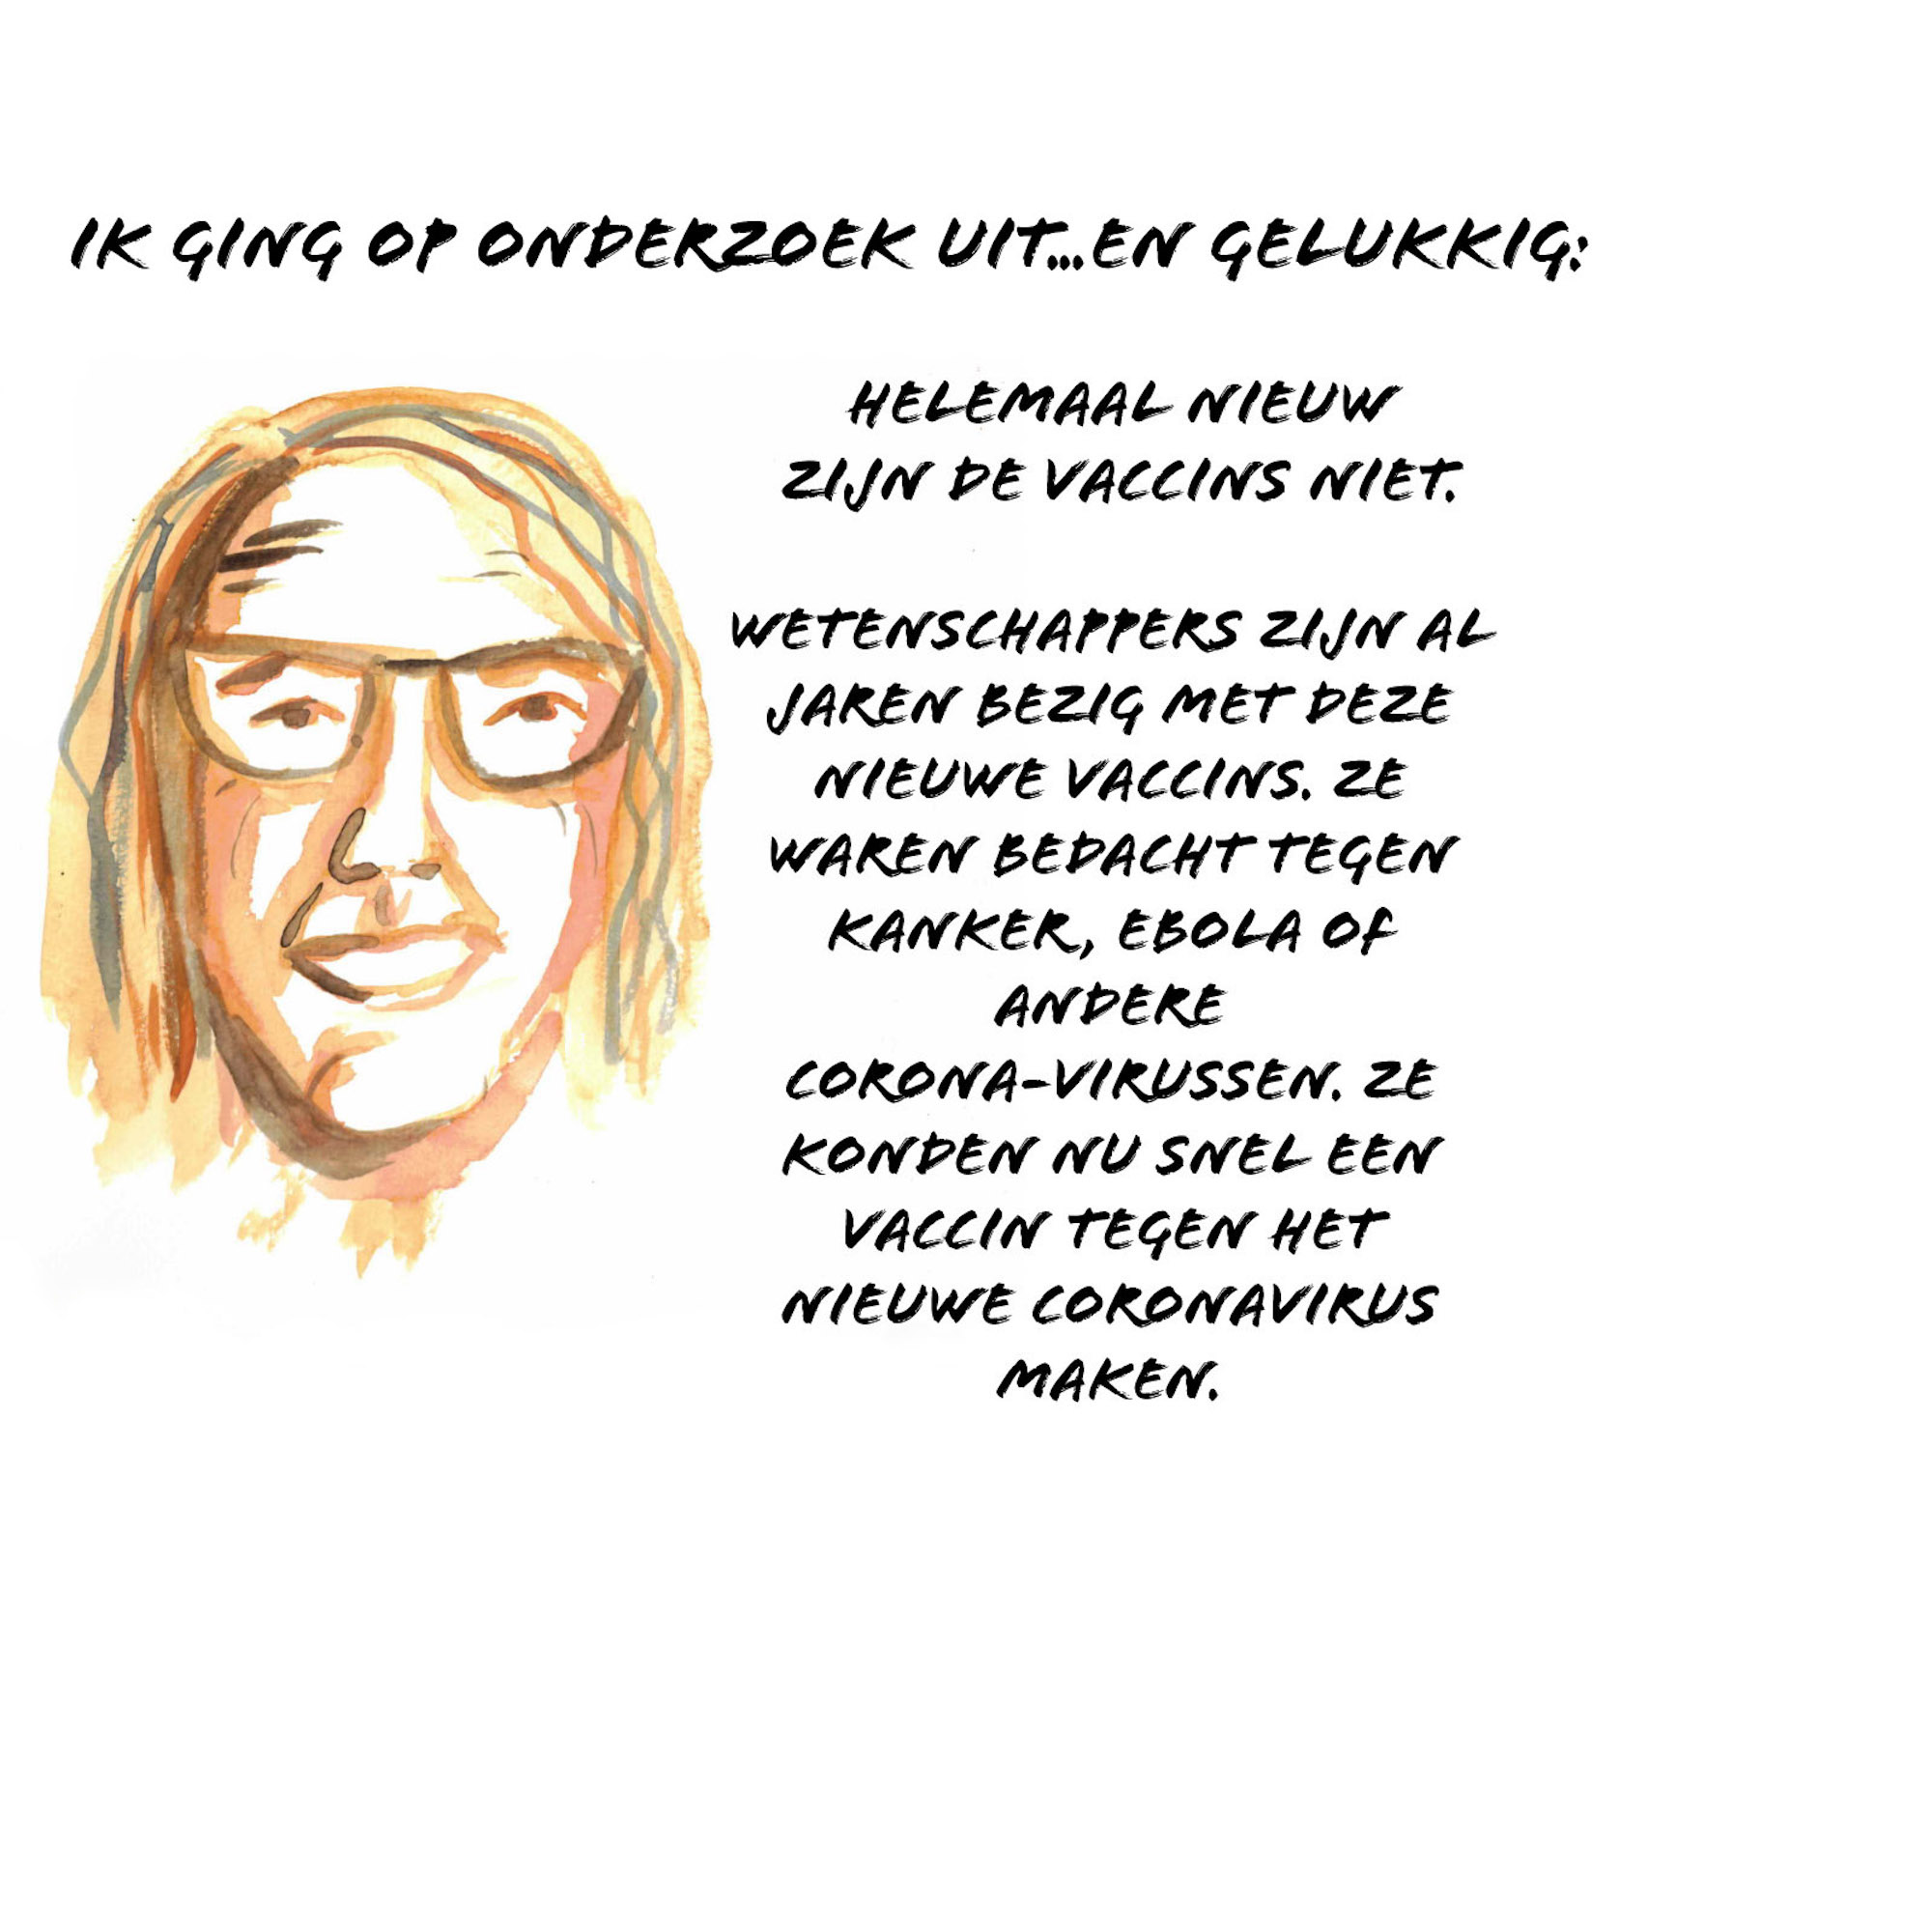 IK GING OP ONDERZOEK UIT...EN GELUKKIG:
HELEMAAL NIEUW
ZIJN DE VACCINS NIET.
WETENSCHAPPERS ZIJN AL
JAREN BEZIG MET DEZE
NIEUWE VACCINS. ZE
WAREN BEDACHT TEGEN
KANKER, EBOLA OF
ANDERE
CORONA-VIRUSSEN. ZE
KONDEN NU SNEL EEN
VACCIN TEGEN HET
NIEUWE CORONAVIRUS
MAKEN.